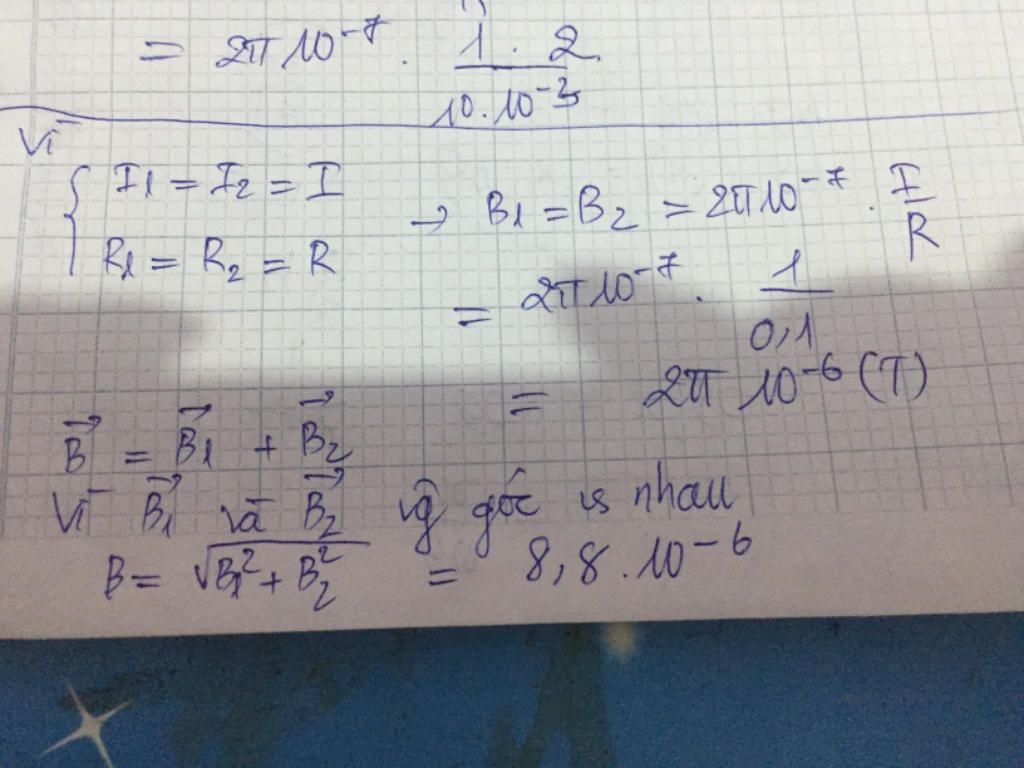 = 2π10⁻⁷ . 1 . 2 / 10.10⁻²
Vì
{ I₁ = I₂ = I
R₁ = R₂ = R
→ B₁ = B₂ = 2π10⁻⁷ . I/R
= 2π10⁻⁷ . 1/0,1
= 2π 10⁻⁶ (T)
B⃗ = B⃗₁ + B⃗₂
Vì B⃗₁ và B⃗₂ vg góc vs nhau
B = √(B₁² + B₂²) = 8,8 . 10⁻⁶